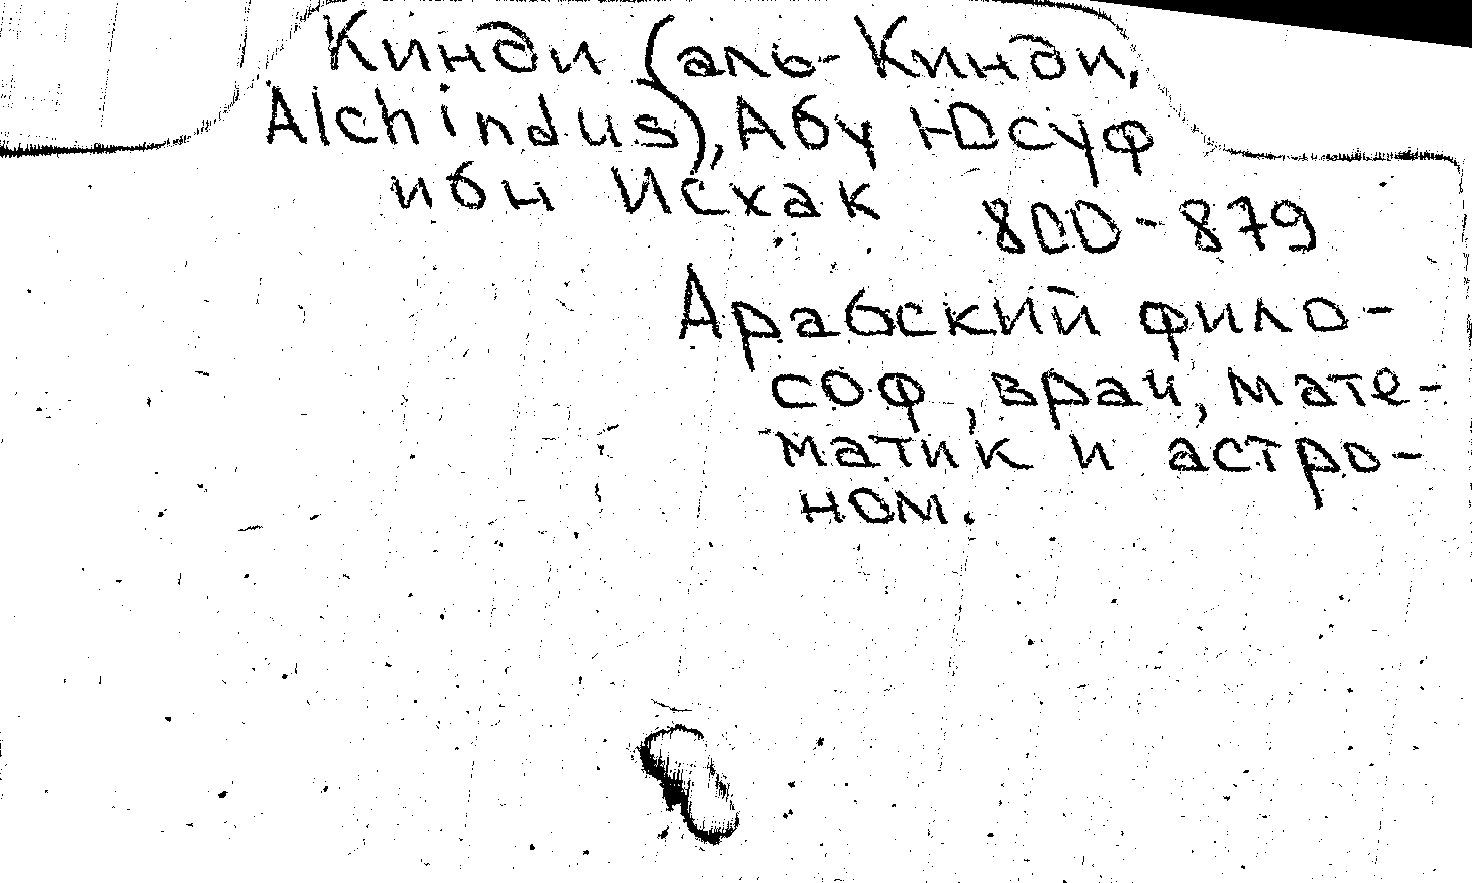 Кинди (аль-Кинди,
Alchindus), Абу Юсуф
ибн Исхак
800-879
Арабский фило-
соф, врач, мате-
матик и астро-
ном.